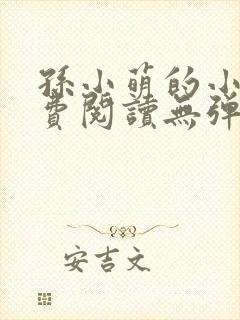 孫小萌的小
費閱讀無彈
安吉文